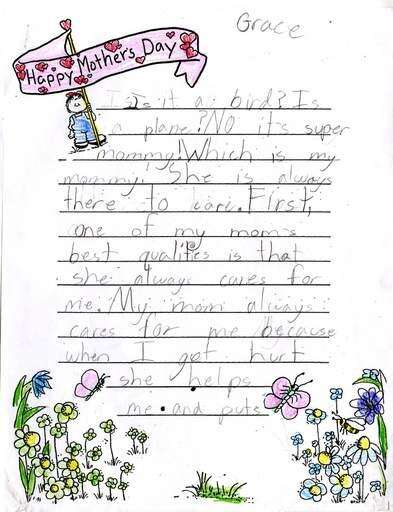 Grace
Happy Mothers Day
Is Is it a bird? Is
a plane? No it's super
mommy! Which is my
mommy. She is always
there to care. First,
one of my mom's
best qualities is that
she always cares for
me. My mom always
cares for me because
when I get hurt
she helps
me and puts